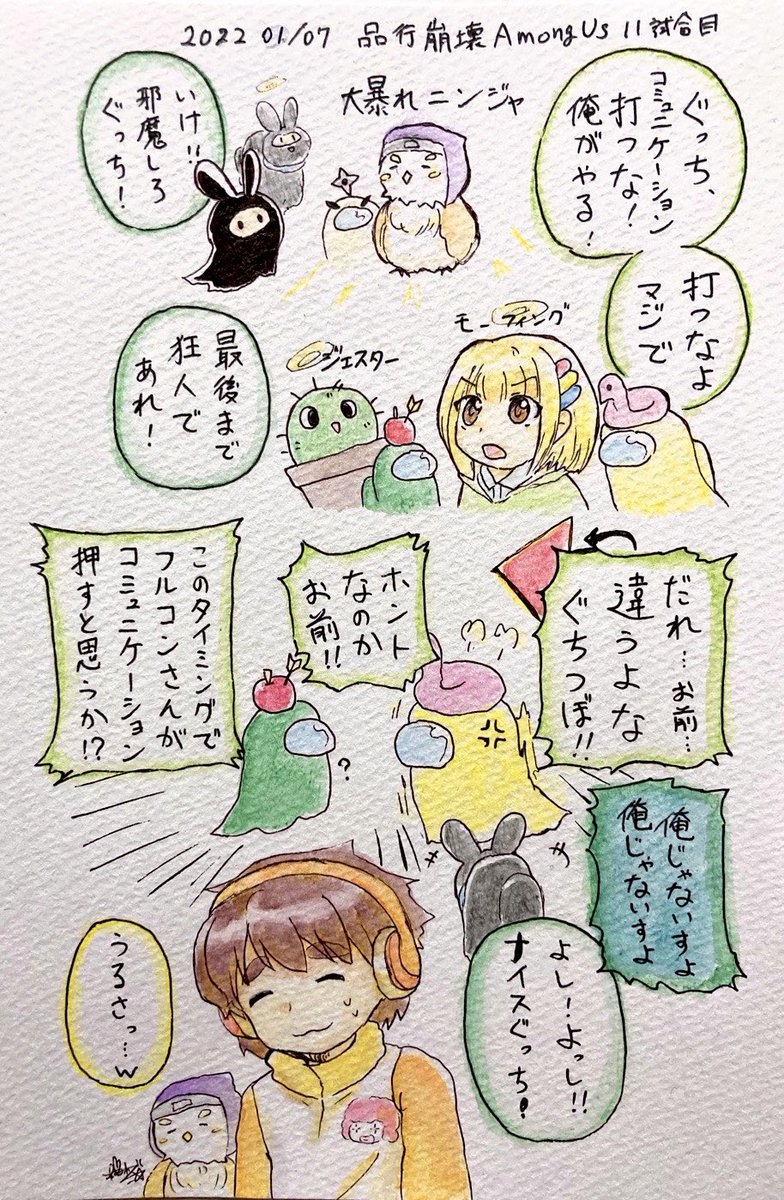 2022 01/07 品行崩壊 AmongUs 11試合目
ぐっち、
コミュニケーション
打つな!
俺がやる!
大暴れニンジャ
いけ!!
邪魔しろ
ぐっち!
打つなよ
マジで
モーフィング
ジェスター
最後まで
狂人で
あれ!
だれ…お前…
違うよな
ぐちつぼ!!
ホント
なのか
お前!!
このタイミングで
フルコンさんが
コミュニケーション
押すと思うか!?
?
俺じゃないすよ
俺じゃないすよ
よし!よっし!!
ナイスぐっち!
うるさっ…w